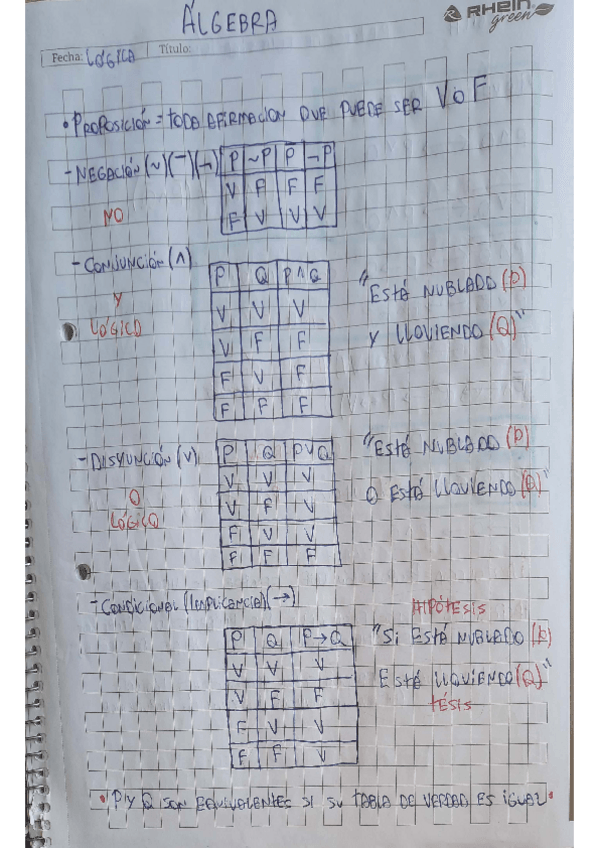 ÁLGEBRA
RHEIN
green
Fecha: LÓGICA Título:
• PROPOSICIÓN = TODA AFIRMACION QUE PUEDE SER V o F
- NEGACIÓN (~) (‾) (¬) P ~P P̅ ¬P
V F F F
NO F V V V
- CONJUNCIÓN (∧) P Q P ∧ Q "ESTÁ NUBLADO (P)
Y V V V
LÓGICO V F F Y LLOVIENDO (Q)"
F V F
F F F
- DISYUNCIÓN (∨) P Q P ∨ Q "ESTÁ NUBLADO (P)
V V V
O V F V O ESTÁ LLOVIENDO (Q)"
LÓGICO F V V
F F F
- CONDICIONAL (IMPLICANCIA) (→) HIPÓTESIS
P Q P → Q "Si ESTÁ NUBLADO (P)
V V V
V F F ESTÁ LLOVIENDO (Q)"
F V V TÉSIS
F F V
• P Y Q SON EQUIVALENTES SI SU TABLA DE VERDAD ES IGUAL •